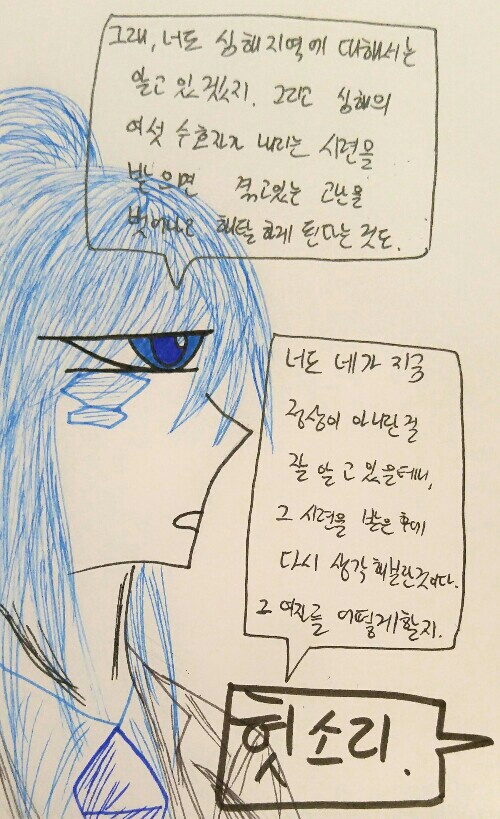 그래, 너도 심해지역에 대해서는
알고 있겠지. 그리고 심해의
여섯 수호자가 내리는 시련을
받으면 겪고있는 고난을
벗어나고 해탈하게 된다는 것도.
너도 네가 지금
정상이 아니란 걸
잘 알고 있을테니,
그 시련을 받은 후에
다시 생각해보란것이다.
그 여자를 어떻게할지.
헛소리.